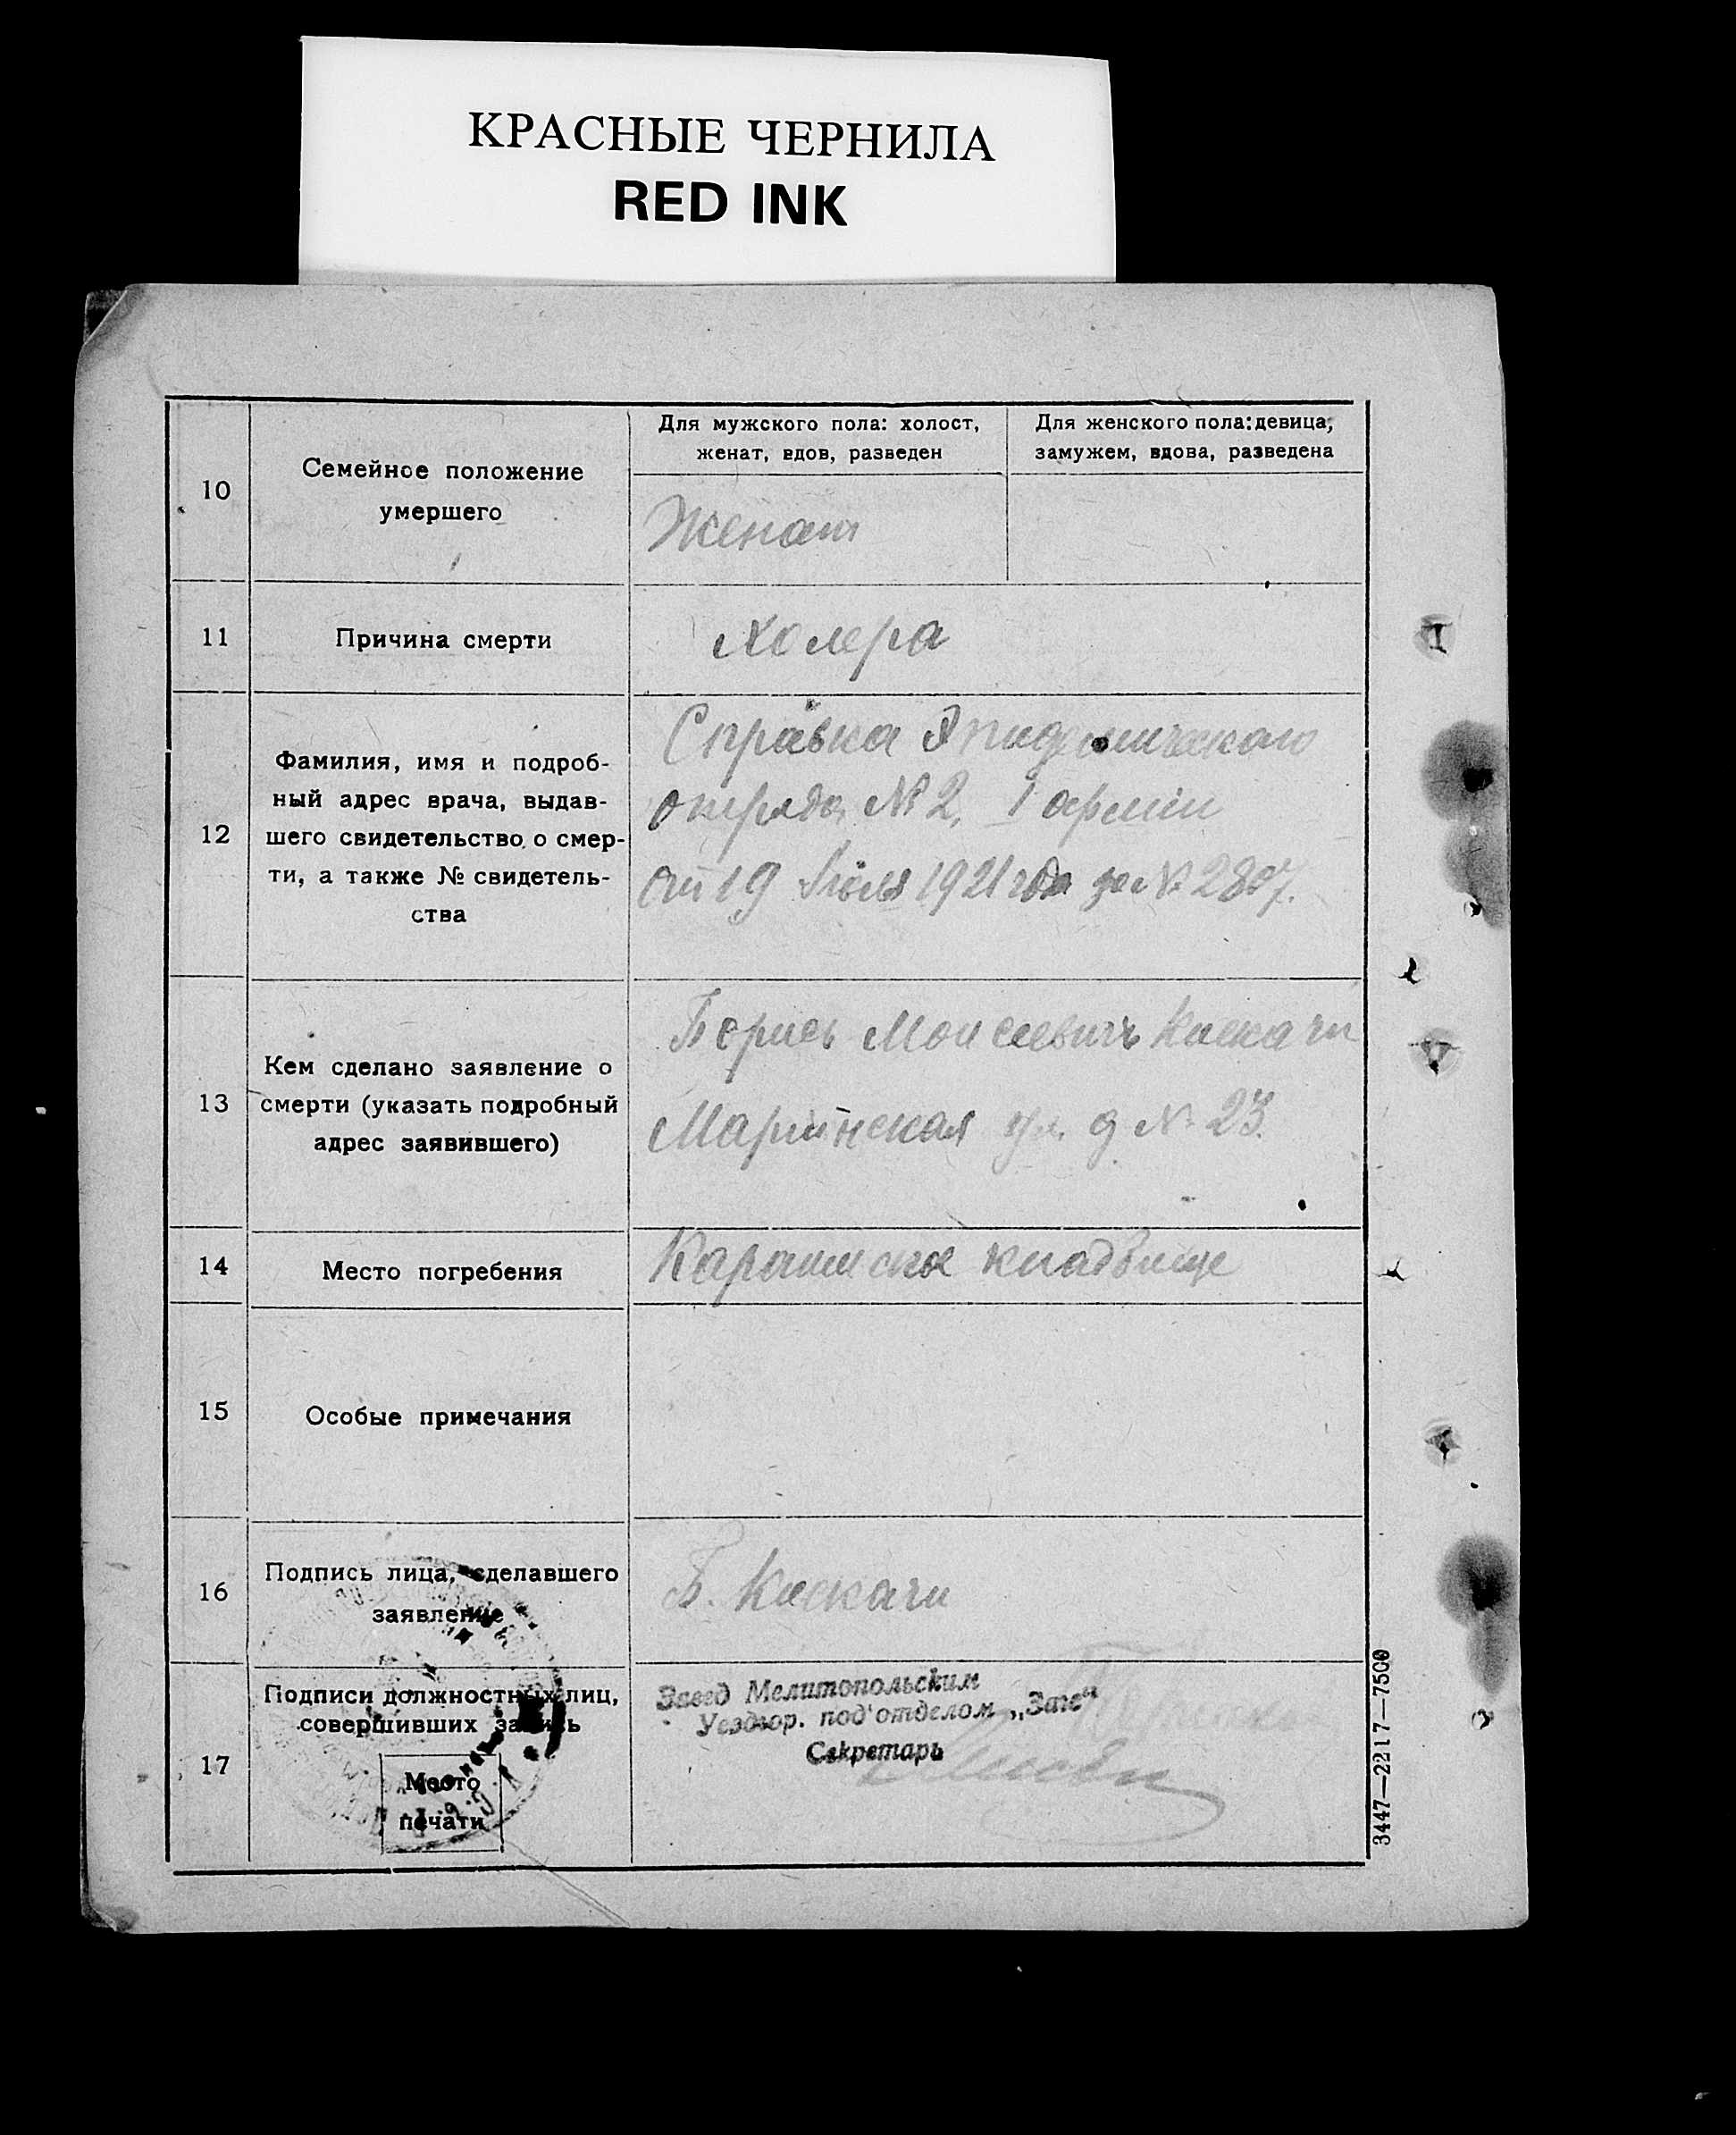 КРАСНЫЕ ЧЕРНИЛА
RED INK
10
Семейное положение
умершего
Для мужского пола: холост,
женат, вдов, разведен
Для женского пола: девица,
замужем, вдова, разведена
Женат
11
Причина смерти
Холера
12
Фамилия, имя и подроб-
ный адрес врача, выдав-
шего свидетельство о смер-
ти, а также № свидетель-
ства
Справка Эпидемическаго
отряда № 2, I армии
от 19 Июля 1921 года за № 2807.
13
Кем сделано заявление о
смерти (указать подробный
адрес заявившего)
Борисъ Моисеевичъ Кискачи
Мариинская ул. д № 23.
14
Место погребения
Караимское кладбище
15
Особые примечания
16
Подпись лица, сделавшего
заявление
Б. Кискачи
17
Подписи должностных лиц,
совершивших запись
Место
печати
Завед Мелитопольским
Уездгор. под'отделом „Загс“
Секретарь
3447—2217—7500